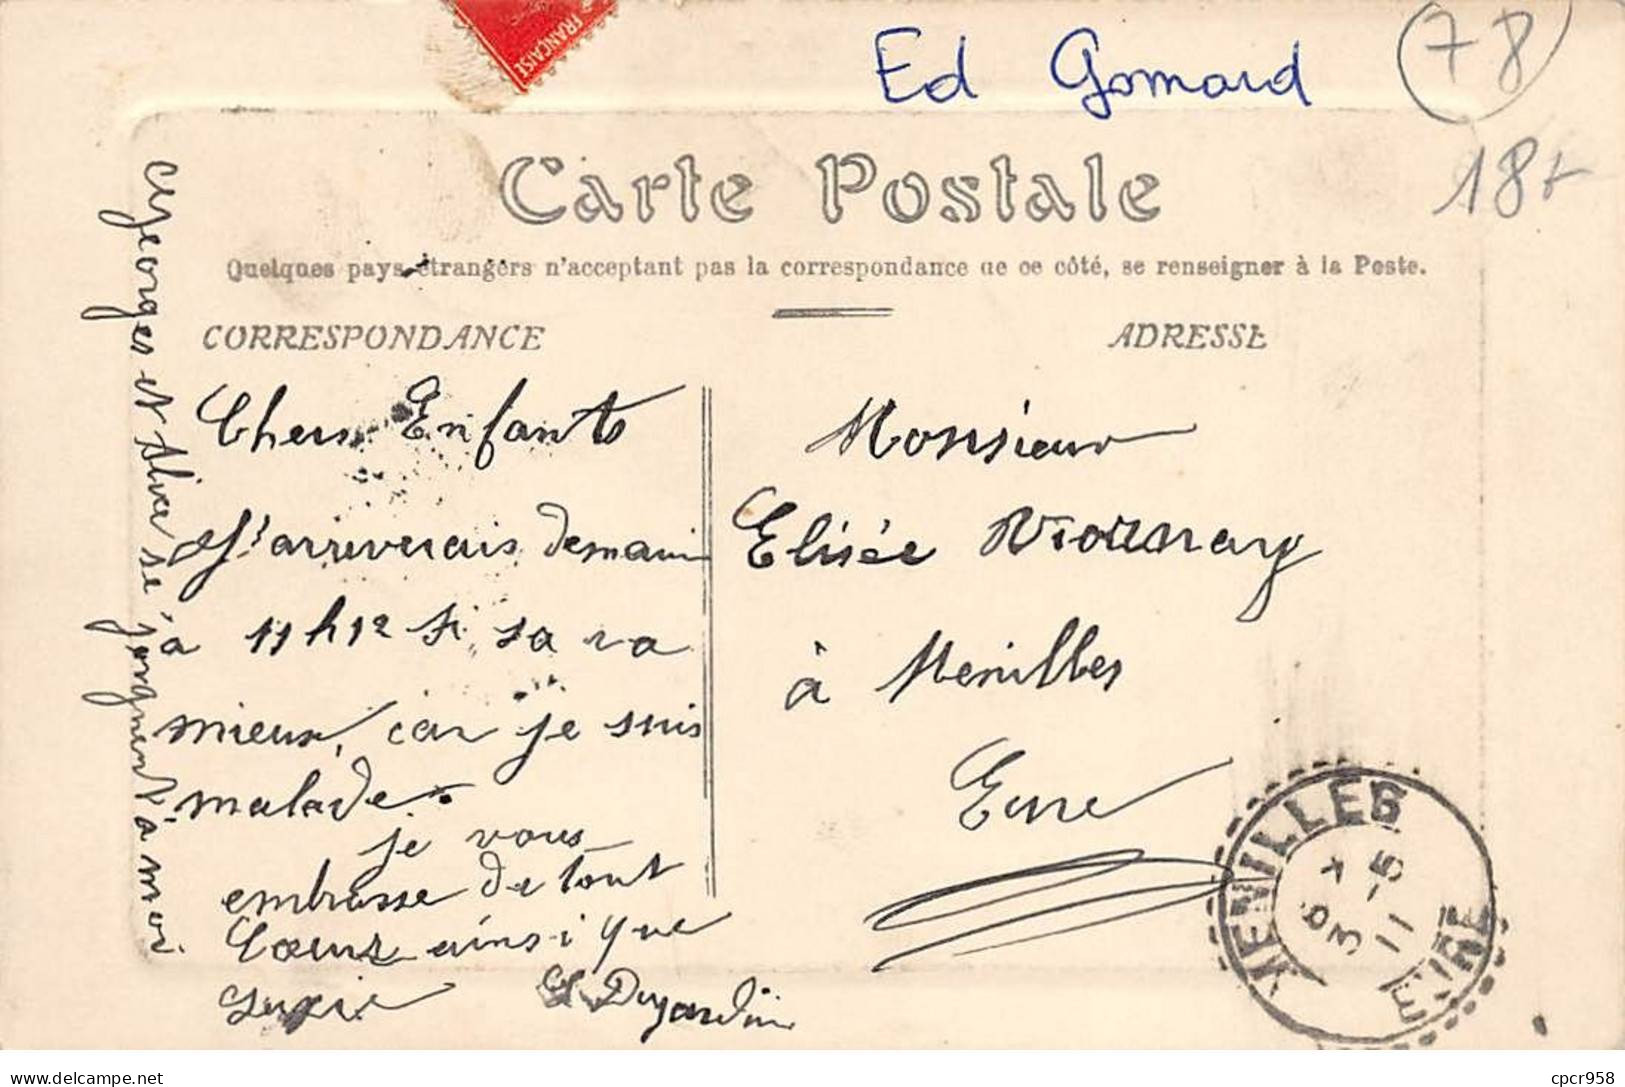 FRANÇAISE
Ed Gomard
78
18+
Carte Postale
Quelques pays étrangers n'acceptant pas la correspondance de ce côté, se renseigner à la Poste.
CORRESPONDANCE
ADRESSE
Chers Enfants
J'arriverais demain
à 11h12 si sa va
mieux, car je suis
malade.
je vous
embrasse de tout
Cœur ainsi que
Suzie
Dujardin
Georges et Alice se joignent à moi
Monsieur
Elisée
à Menilles
Eure
MENILLES
3 - 5
11
EURE
delcampe.net
cpcr958